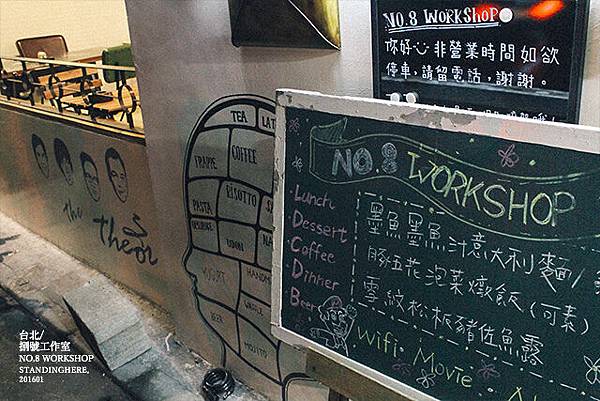 NO.8 WORKSHOP
你好 非營業時間如欲
停車，請留電話，謝謝。
TEA
LAT
COFFEE
FRAPPE
RISOTTO
PASTA
UDON
YOGURT
HANDM
WAFFLE
BEER
MOJITO
the
theor
NO.8 WORKSHOP
Lunch
Dessert
Coffee
Dinner
Beer
墨魚墨魚汁意大利麵/
豚五花泡菜燉飯(可素)
雪紋松板豬佐魚露
Wifi. Movie
台北/
捌號工作室
NO.8 WORKSHOP
STANDINGHERE,
201601